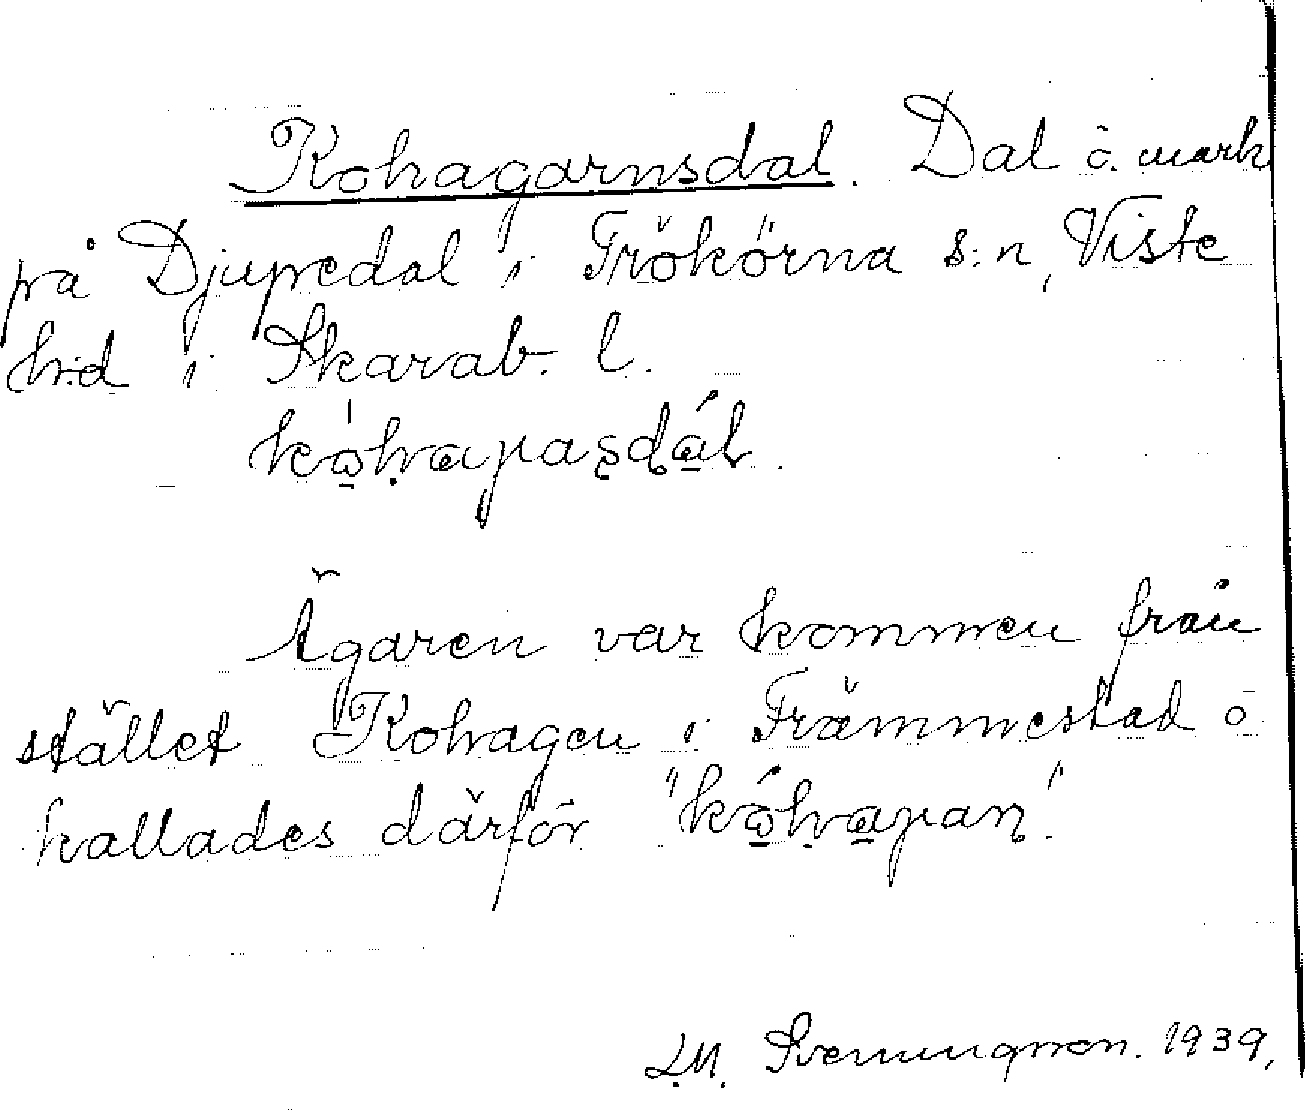 Kohagarnsdal. Dal o. mark
på Djupedal i Frökörna s:n, Viste
h:d i Skarab. l.
kóhaγaşdál.
Ägaren var kommen från
stället Kohagen i Främmestad o
kallades därför "kóhaγan".
L.M. Svenungsson. 1939.